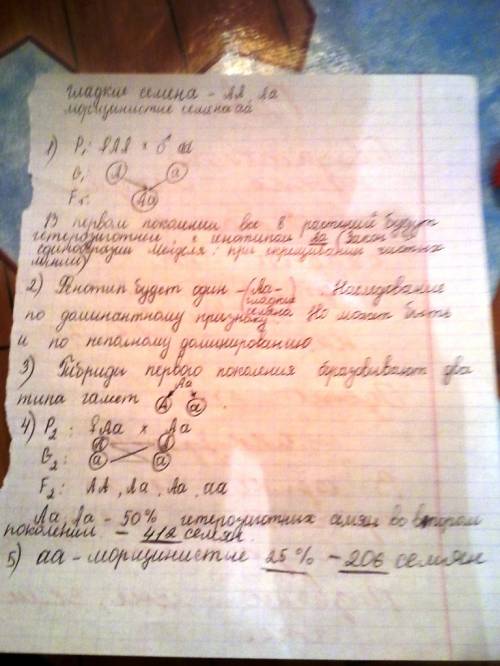 гладкие семена - АА, Аа
морщинистые семена аа
1) P1: ♀AA × ♂ aa
G: A a
F1: Aa
В первом поколении все 8 растений будут
гетерозиготны, с генотипом Аа (Закон
единообразия Менделя: при скрещивании чистых
линий)
2) Фенотип будет один - (Аа - гладкие семена). Наследование
по доминантному признаку. Но может быть
и по неполному доминированию
3) Гибриды первого поколения образовывают два
типа гамет Аа A a.
4) P2: ♀Aa × Aa
G2: A a A a
F2: AA, Aa, Aa, aa
Аа, Аа - 50% гетерозиготных семян во втором
поколении - 412 семян.
5) аа - морщинистые 25% - 206 семян